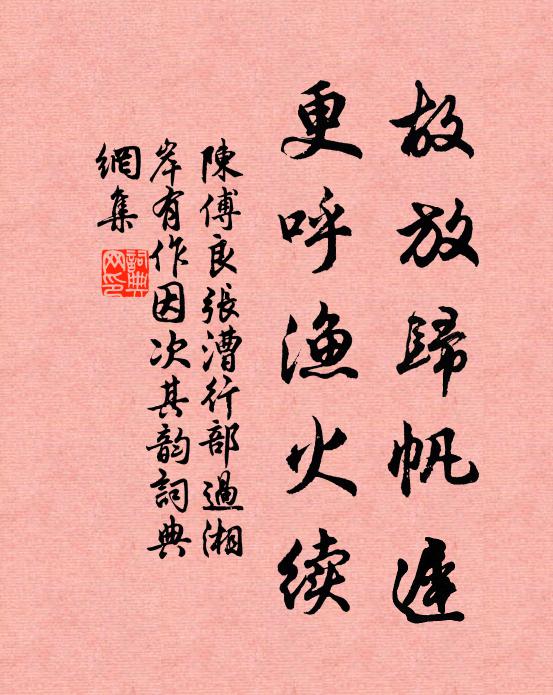 故放歸帆遲
更呼漁火續
陳傅良張漕行部過湘
岸有作因次其韵詞典
網集
詞典
网印